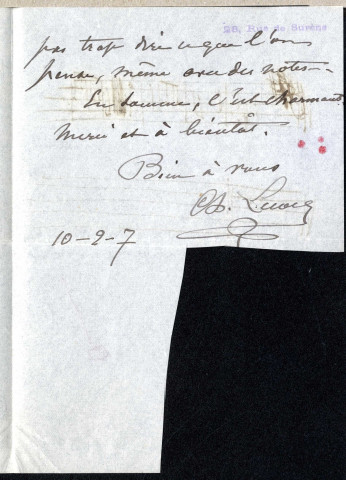 28, Rue de Surène
pas trop dire ce que l'on
pense, même avec des notes.
En somme, c'est charmant.
Merci et à bientôt.
Bien à vous
Ch. Lecocq
10-2-7